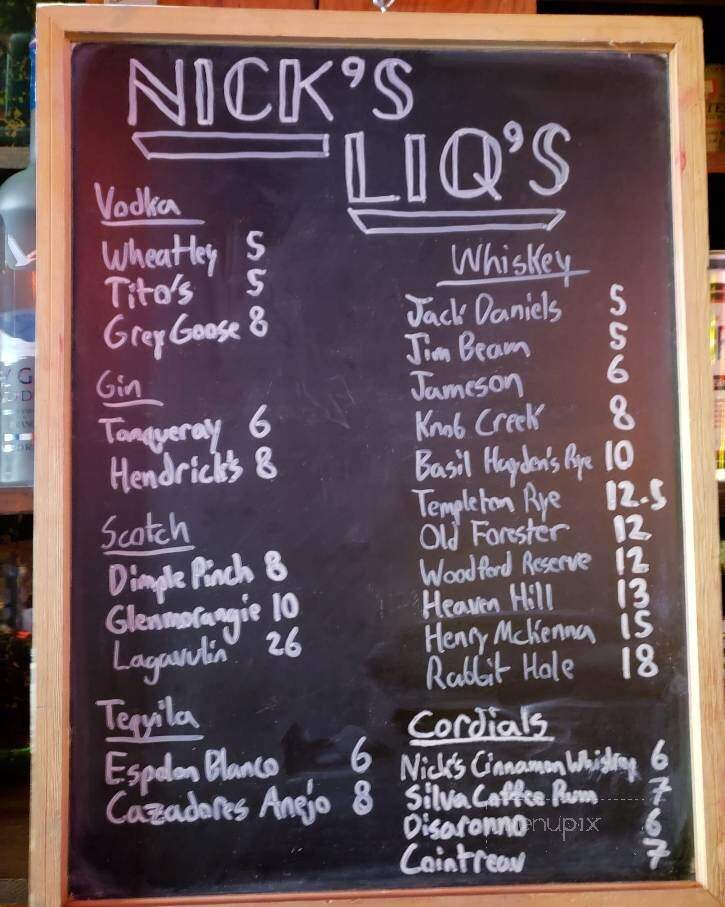 NICK'S
LIQ'S
Vodka
Wheatley 5
Tito's 5
Grey Goose 8
Gin
Tanqueray 6
Hendrick's 8
Scotch
Dimple Pinch 8
Glenmorangie 10
Lagavulin 26
Tequila
Espolon Blanco 6
Cazadores Anejo 8
Whiskey
Jack Daniels 5
Jim Beam 5
Jameson 6
Knob Creek 8
Basil Hayden's Rye 10
Templeton Rye 12.5
Old Forester 12
Woodford Reserve 12
Heaven Hill 13
Henry McKenna 15
Rabbit Hole 18
Cordials
Nick's Cinnamon Whiskey 6
Silva Coffee Rum 7
Disaronno 6
Cointreau 7
menupix